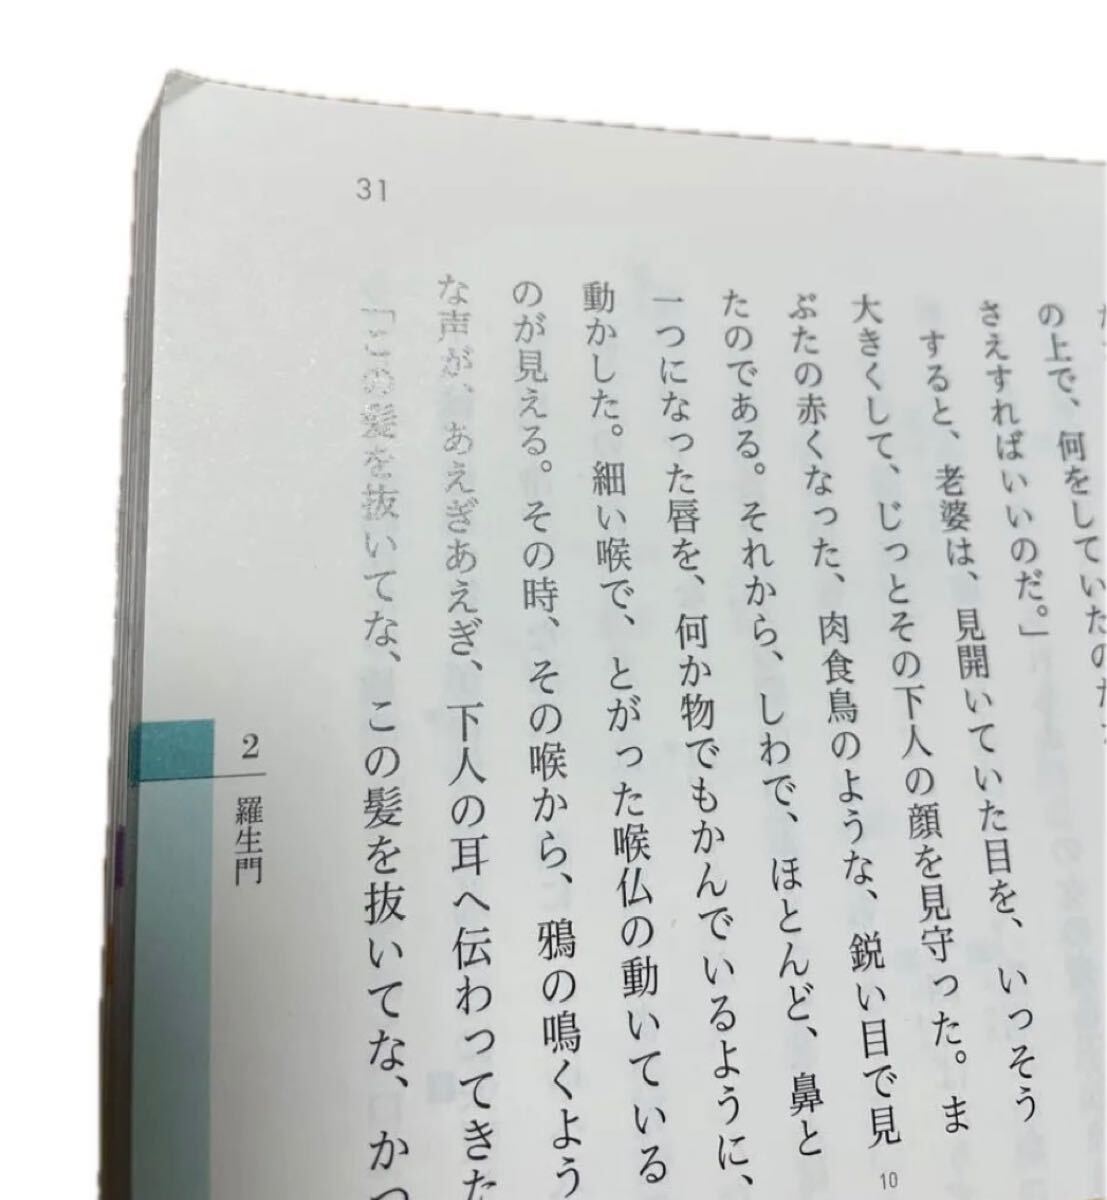 の上で、何をしていたのだ
さえすればいいのだ。」
すると、老婆は、見開いていた目を、いっそう
大きくして、じっとその下人の顔を見守った。ま
ぶたの赤くなった、肉食鳥のような、鋭い目で見
たのである。それから、しわで、ほとんど、鼻と
一つになった唇を、何か物でもかんでいるように、
動かした。細い喉で、とがった喉仏の動いている
のが見える。その時、その喉から、鴉の鳴くよう
な声が、あえぎあえぎ、下人の耳へ伝わってきた
「この髪を抜いてな、この髪を抜いてな、かつ
10
31
2
羅生門